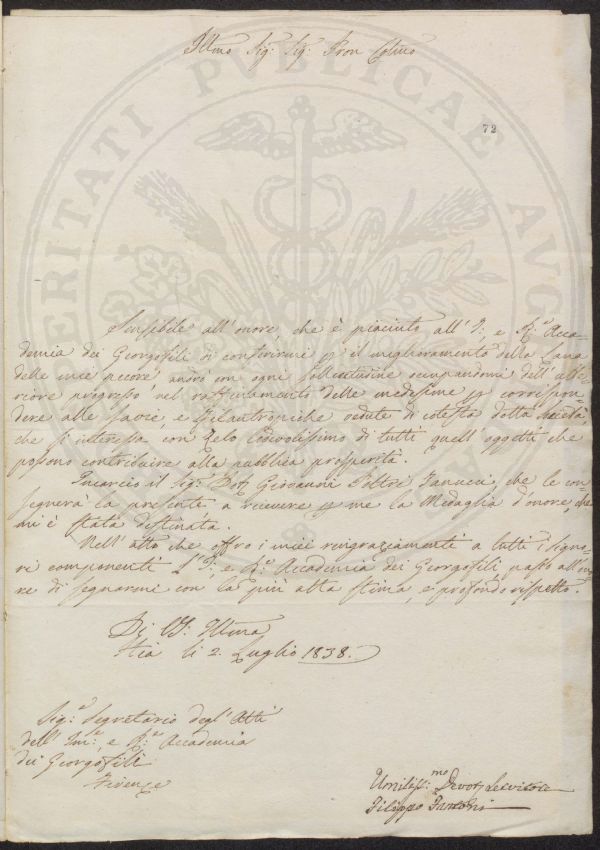 Illmo Sig: Sig: Pron Colmo
72
Sensibile all'onore, che è piaciuto all'I: e R:e Acca-
demia dei Georgofili di conferirmi p il miglioramento della Lana
delle mie pecore, andrò con ogni sollecitudine occupandomi dell'ulte-
riore progresso nel raffinamento delle medesime p corrispon-
dere alle savie, e filantropiche vedute di cotesta dotta Società,
che si interessa con zelo lodevolissimo di tutti quell'oggetti che
possono contribuire alla pubblica prosperità.
Incarico il Sig: Dott Giovanni Poltri che le con-
segnerà la presente a ricevere p me la Medaglia d'onore, che
mi è stata destinata.
Nell'atto che offro i miei ringraziamenti a tutti i Signo-
ri componenti l'I: e R:e Accademia dei Georgofili, passo all'ono-
re di segnarmi con la più alta stima, e profondo rispetto.
Di VS: Illma
Stia li 2. Luglio 1838.
Sig:e Segretario degl'Atti
dell'Im:e e R:e Accademia
dei Georgofili
Firenze
Umiliss:mo Devot Servitore
Filippo
VERITATI PVBLICAE AVG